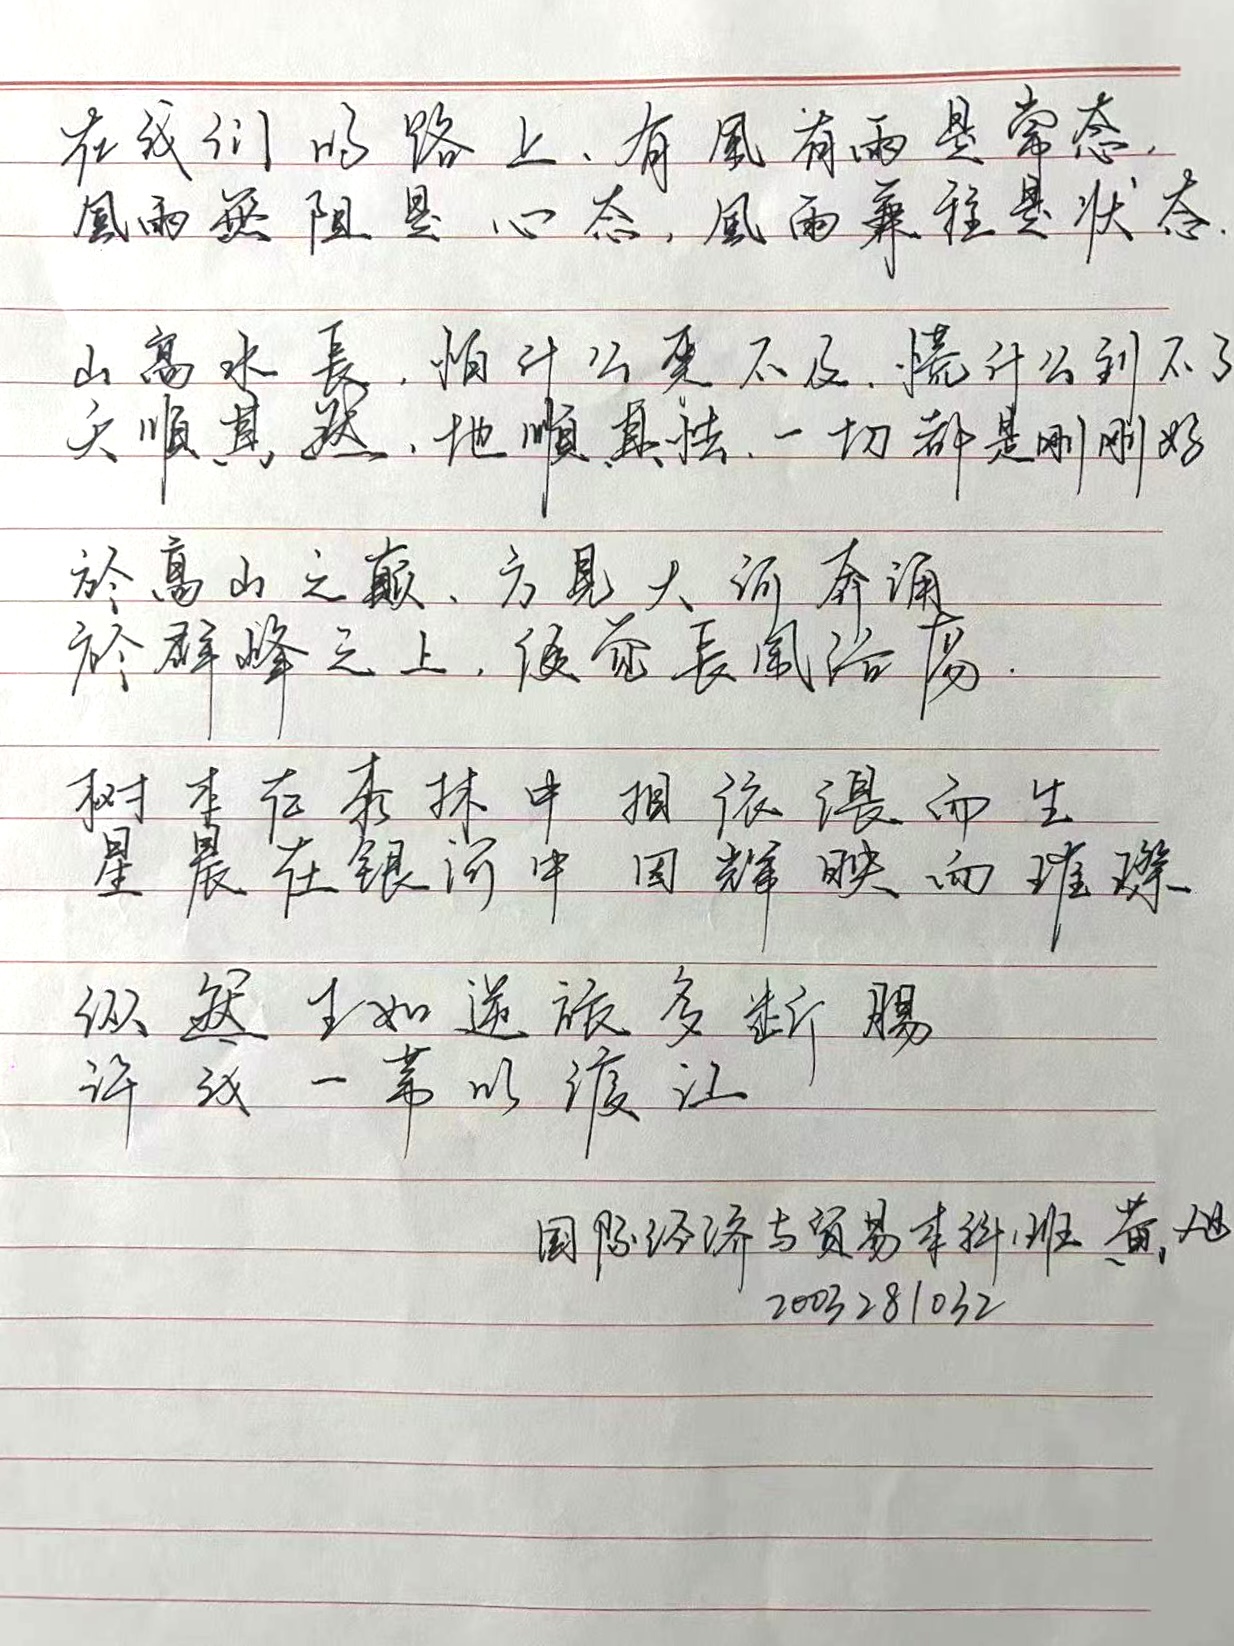 在我们的路上、有風有雨是常态，
風雨無阻是心态，風雨兼程是状态.
山高水長，怕什么来不及、慌什么到不了
天順其然，地順其性、一切都是刚刚好
於高山之巅、方見大河奔涌
於群峰之上，便覺長風浩荡.
树木在森林中相依偎而生
星晨在银河中因辉映而璀璨
纵然生如逆旅多断腸
许我一苇以渡江
国际经济与贸易本科1班 黄旭
2003281032